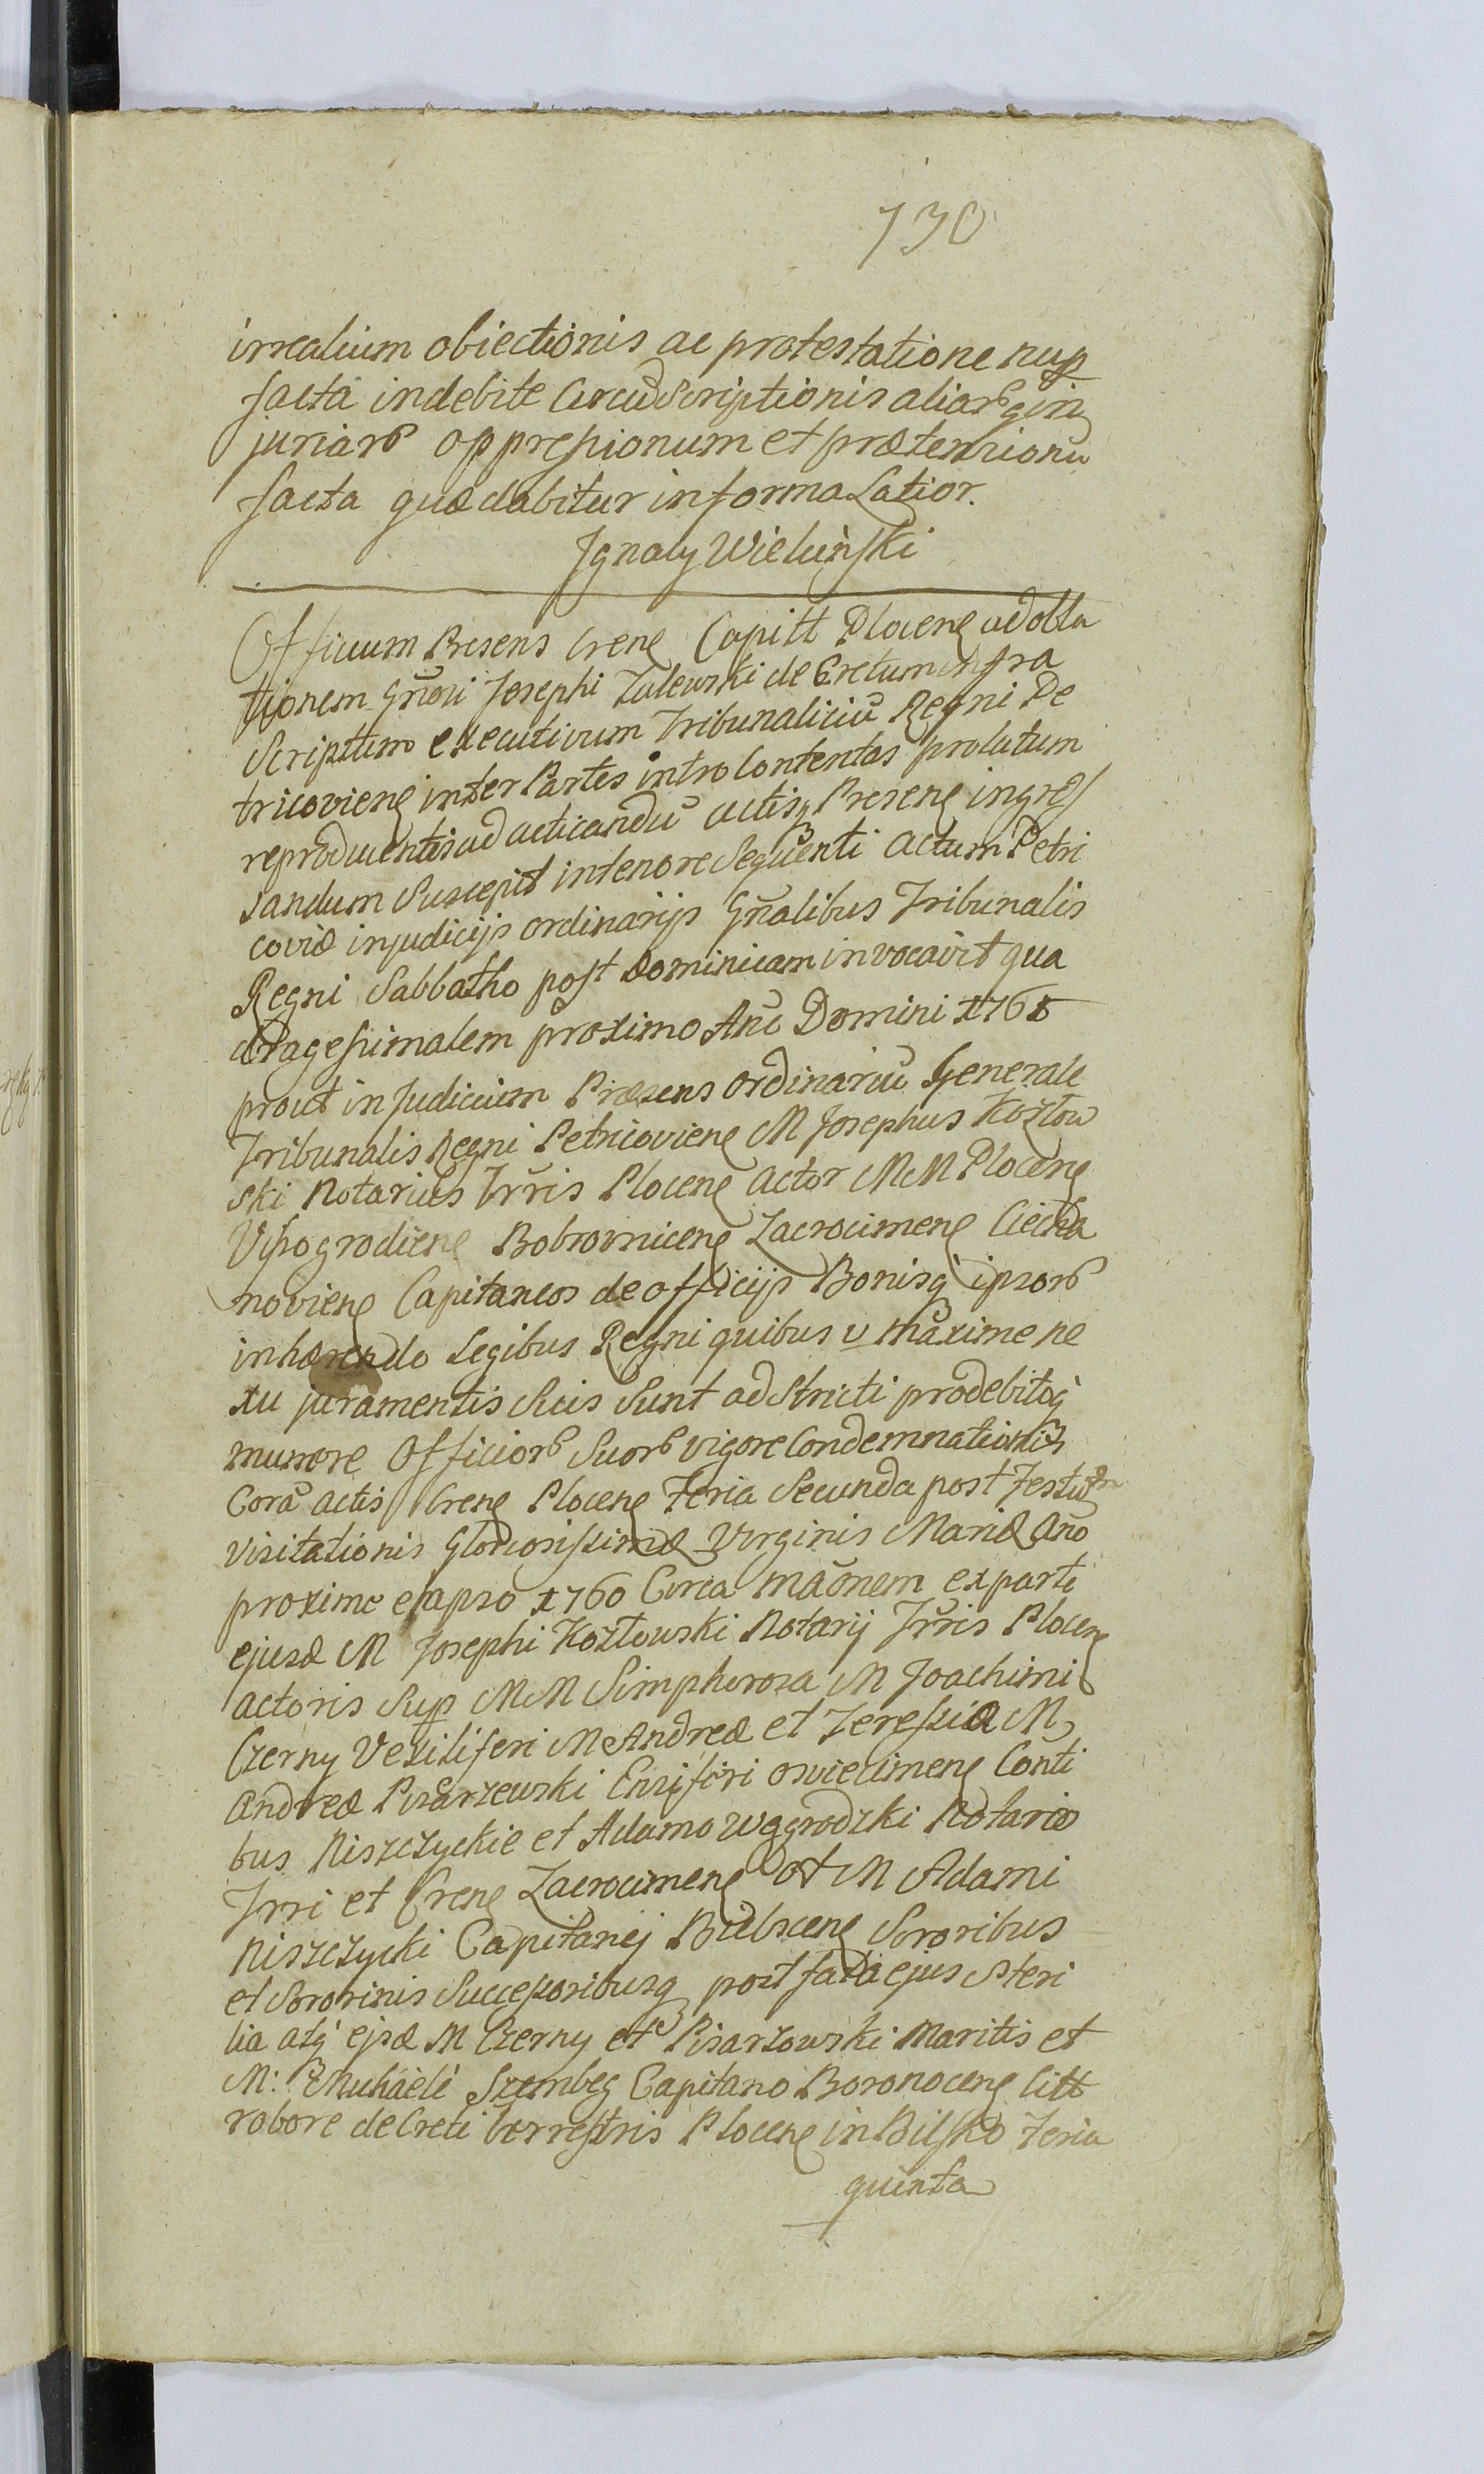 730
irrealium obiectionis ac protestatione nup
facta indebite Circūscriptionis aliarą in
juriarō oppressionum et prætensionū
facta quæ dabitur in forma Latior.
Ignacy Wielunski
Officium Præsens Crense Capitt Plocense ad obla
tionem Gnōsi Josephi Zulewski deCretum infra
Scriptum executivum Tribunaliciū Regni Pe
tricoviense inter Partes intro Contentas prolatum
reproducentis ad acticandū actisq Præsense ingres
sandum Suscepit in tenore Sequenti Actum Petri
coviæ in judicijs ordinarijs Gn̄alibus Tribunalis
Regni Sabbatho post Dominicam invocavit qua
dragesimalem proximo An̄o Domini 1761
prout in Judicium Præsens Ordinariū Generale
Tribunalis Regni Petricoviense M Josephus Kozłow
ski Notarius Tr̄ris Plocense Actor MM Plocense
Vissogrodiense Bobrovnicense Zacrocimense Ciecha
noviense Capitaneos de officijs Bonisq ipsorō
inhærendo Legibus Regni quibus v maxime ne
xu juramentis Suis Sunt adstricti pro debitoq
munere Officiorō Suorō vigore Condemnationis
Corā actis Crense Plocense Feria Secunda post Festum
Visitationis Gloriosissimæ Virginis Mariæ An̄o
proxime elapso 1760 Circa māonem ex parte
ejusd M Josephi Kozłowski Notarij Tr̄ris Plocense
actoris Sup MM Simpherosa M Joachimi
Czerny Vexiliferi M Andreæ et Teressiæ M
Andreæ Pisarzewski Ensiferi osviecimense Conti
bus Niszczyckie et Adamo Wagrodzki Notario
Trri et Crense Zacrocimense et M Adami
Niszczycki Capitanej Bielscense Sororibus
et Sororinis Successoribusq post fata ejus Steri
lia atq ejsd M Czerny et Pisarzowski Maritis et
M: Michaele Szembeg Capitano Boronocense litt
robore deCreti terrestris Plocense in Bilsko Feria
quinta